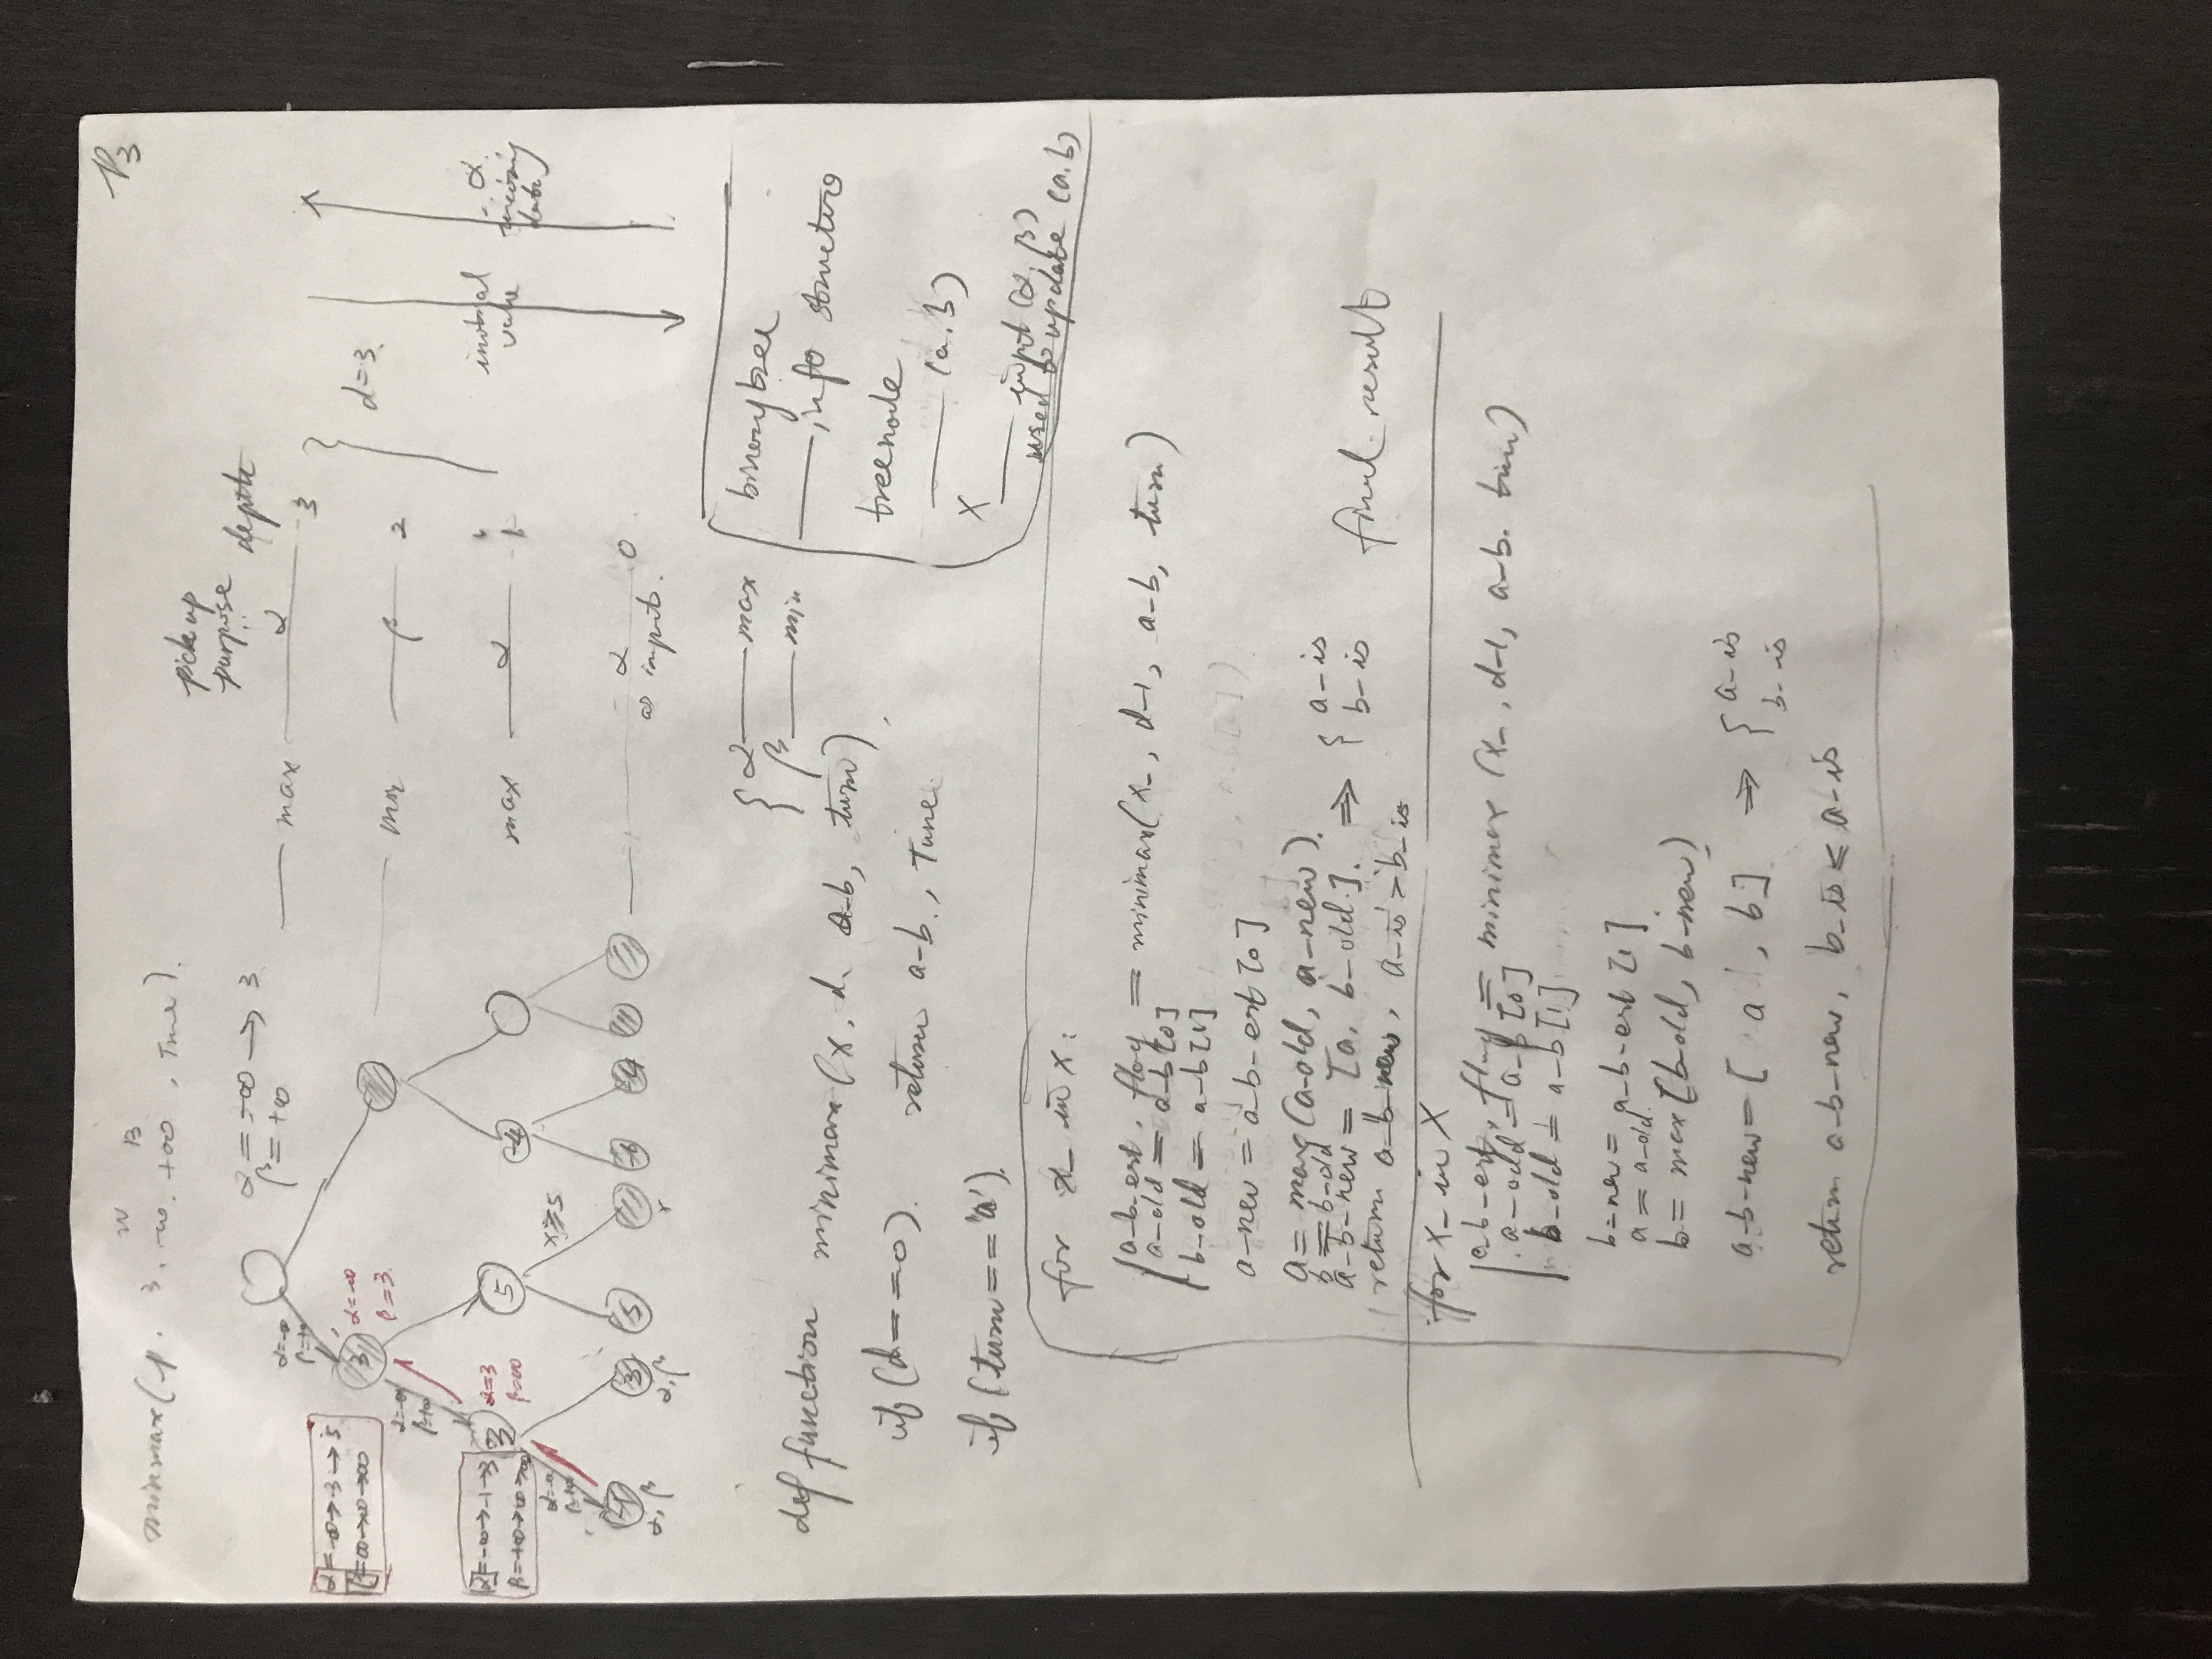 P3
W B
minmax(p. 3. -∞. +∞, True).
pick up
purpose
depth
α = -∞ → 3
β = +∞
max α 3
α=-∞
β=+∞
α=-∞→-3→5
β=∞→∞→∞
3
α=-∞
β=3.
min β 2
d=3.
α=-∞
β=+∞
α=-∞→-1→3
β=+∞→∞→∞
3
α=3
β=∞
5
-4
max α 1
initial
value
α.
data
α=-∞
β=+∞
x≥5
-1
3
5
-6
-4
α 0
as input.
α, β
α, β
x
{ α — max
β — min
binary tree
— info structure
treenode
— (a.b)
X
— input (α, β)
used to update (a.b)
def function minimax(x, d, a-b, turn)
if (d==0). return a-b., True
if (turn=='a').
for x_ in x:
a-b-est, flag = minimax(x_, d-1, a-b, turn)
a-old = a-b[0]
b-old = a-b[1]
a-new = a-b-est[0]
a = max(a-old, a-new).
b = b-old
a-b-new = [a, b-old]. ⇒ { a-is
b-is
final result
return a-b-new, a-is > b-is
for x_ in X
a-b-est, flag = minimax (x_, d-1, a-b. turn)
a-old = a-b[0]
b-old = a-b[1]
b-new = a-b-est[1]
a = a-old.
b = max[b-old, b-new)
a-b-new = [ a , b] ⇒ { a-is
b-is
return a-b-new, b-is ≤ a-is